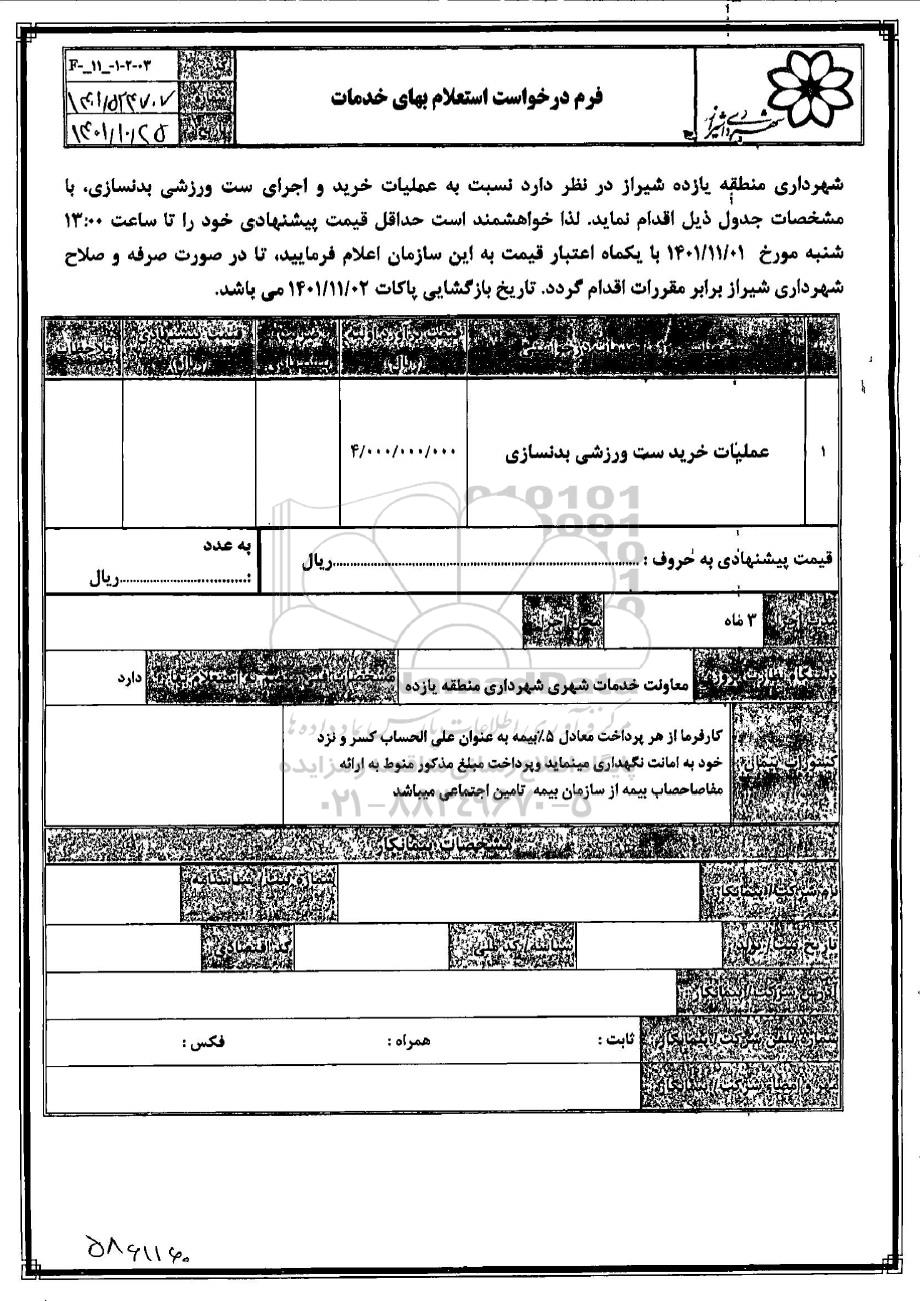 کد
F-_11_-1-2-03
فرم درخواست استعلام بهای خدمات
شهرداری منطقه یازده شیراز در نظر دارد نسبت به عملیات خرید و اجرای ست ورزشی بدنسازی، با
مشخصات جدول ذیل اقدام نماید. لذا خواهشمند است حداقل قیمت پیشنهادی خود را تا ساعت ۱۳:۰۰
شنبه مورخ ۱۴۰۱/۱۱/۰۱ با یکماه اعتبار قیمت به این سازمان اعلام فرمایید، تا در صورت صرفه و صلاح
شهرداری شیراز برابر مقررات اقدام گردد. تاریخ بازگشایی پاکات ۱۴۰۱/۱۱/۰۲ می باشد.
(ریال)
(ریال)
ملاحظات
۱
عملیات خرید ست ورزشی بدنسازی
۴/۰۰۰/۰۰۰/۰۰۰
قیمت پیشنهادی به حروف : ....................ریال
به عدد
:....................ریال
مدت اجرا
۳ ماه
محل اجرا
معاونت خدمات شهری شهرداری منطقه یازده
دارد
کسورات پیمان
کارفرما از هر پرداخت معادل ۵٪بیمه به عنوان علی الحساب کسر و نزد
خود به امانت نگهداری مینماید وپرداخت مبلغ مذکور منوط به ارائه
مفاصاحصاب بیمه از سازمان بیمه تامین اجتماعی میباشد
۰۲۱-۸۸۲۴۹۶۷۰-۵
مشخصات پیمانکار
نام شرکت/ پیمانکار
تاریخ ثبت/ تولد
شناسه/ کد ملی
کد اقتصادی
آدرس شرکت/پیمانکار
شماره تلفن شرکت/ پیمانکار
ثابت :
همراه :
فکس :
مهر و امضاء شرکت/ پیمانکار